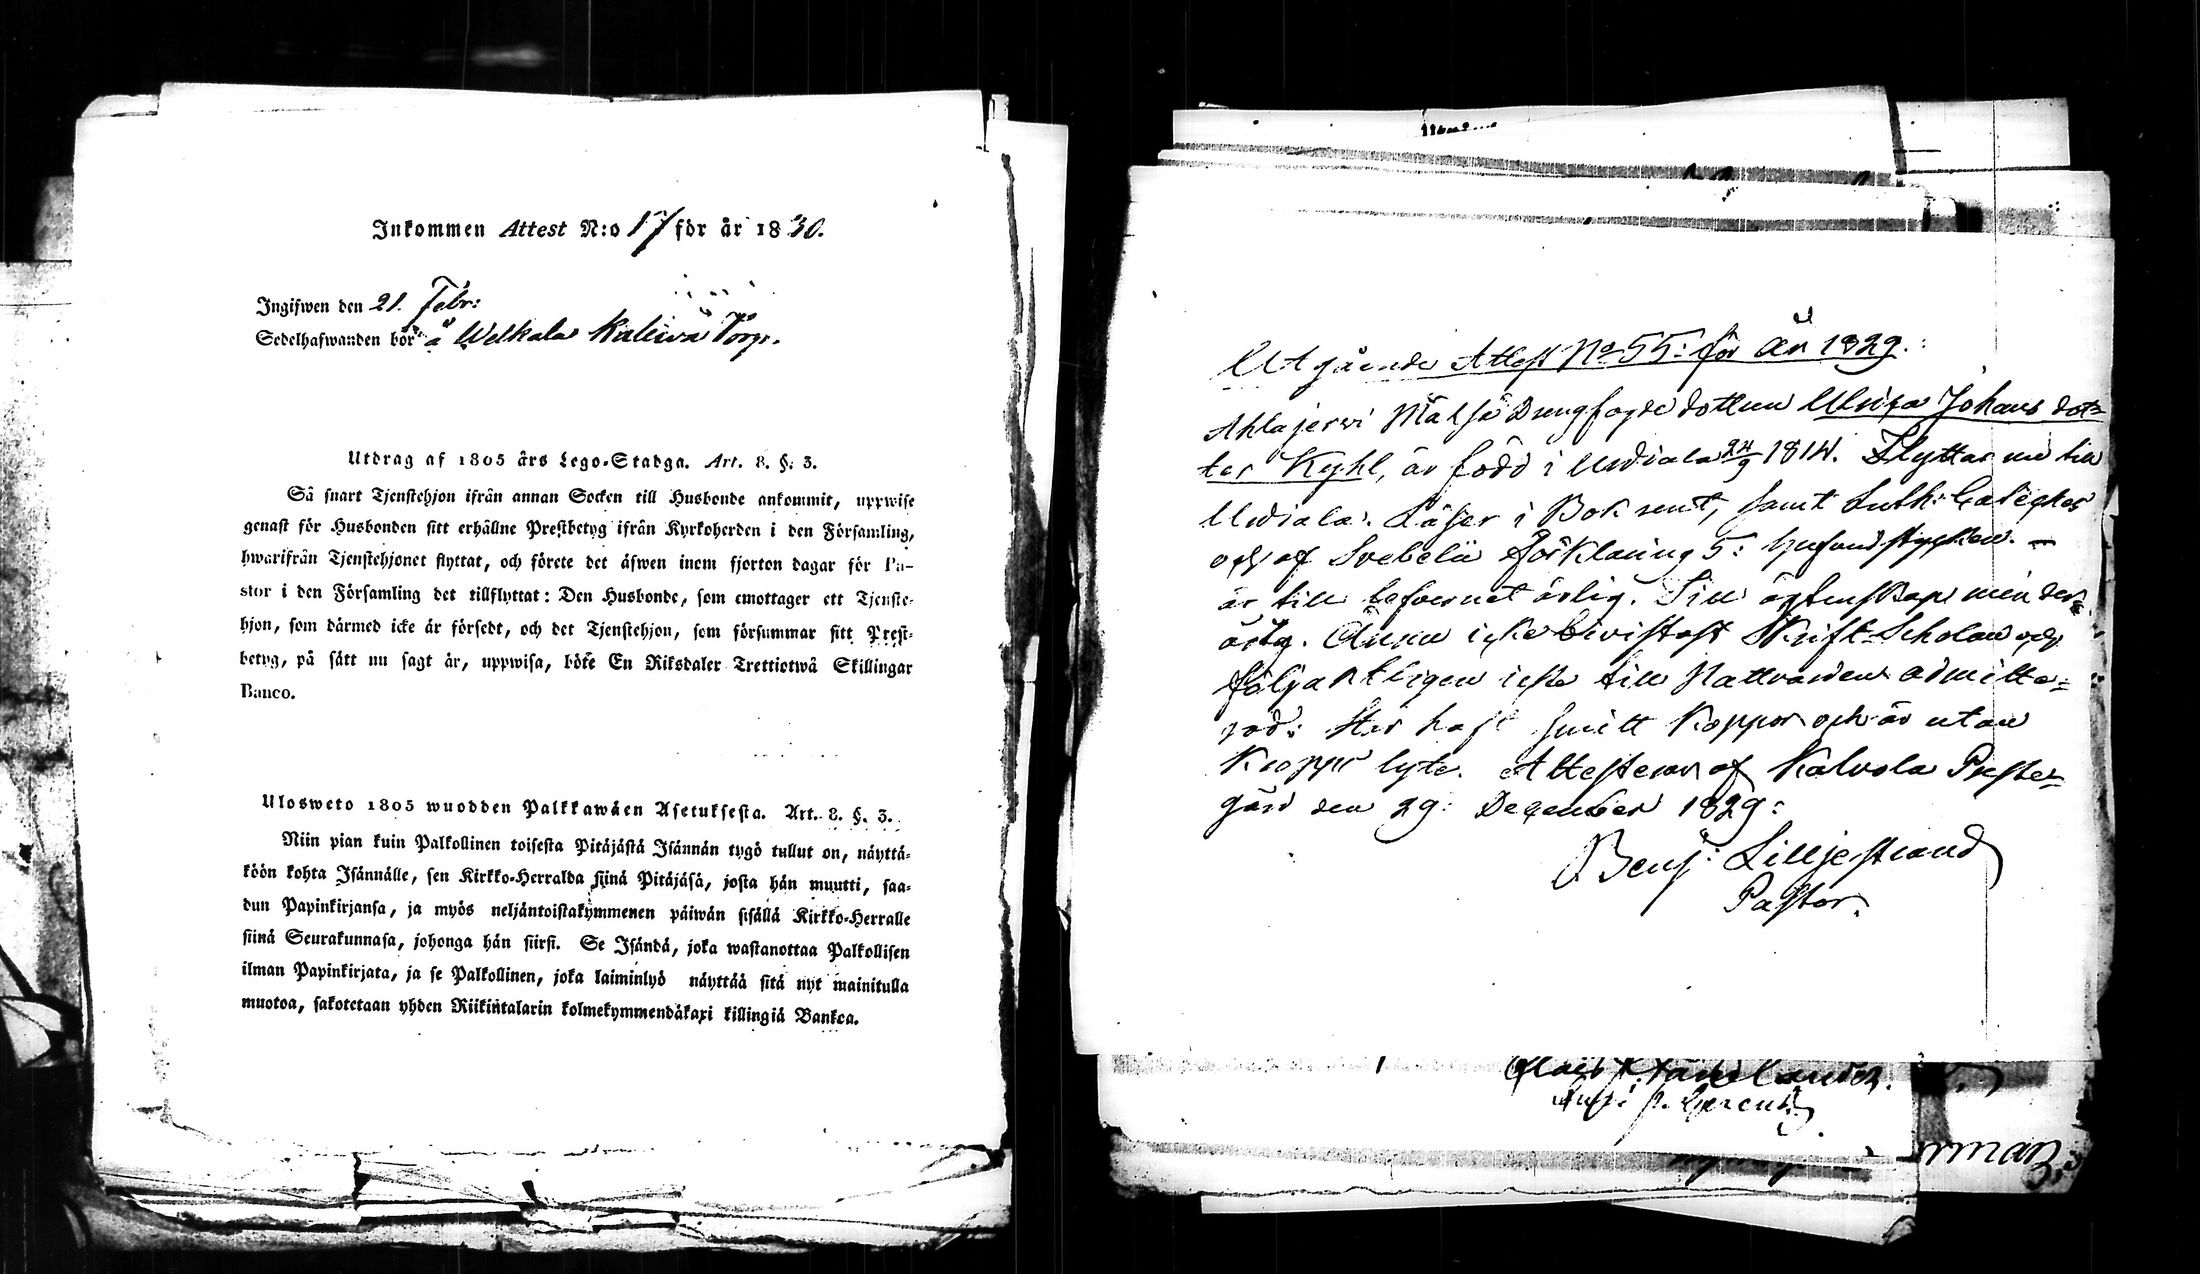 Inkommen Attest N:o 17 för år 1830.
Ingifwen den 21. Febr:
Sedelhafwanden bor å Welkala Kaliwa Torp.
Utdrag af 1805 års Lego-Stadga. Art. 8. §. 3.
Så snart Tjenstehjon ifrån annan Socken till Husbonde ankommit, uppwise
genast för Husbonden sitt erhållne Prestbetyg ifrån Kyrkoherden i den Församling,
hwarifrån Tjenstehjonet flyttat, och förete det äfwen inem fjorton dagar för Pa-
stor i den Församling det tillflyttat: Den Husbonde, som emottager ett Tjenste-
hjon, som därmed icke är försedt, och det Tjenstehjon, som försummar sitt Prest-
betyg, på sätt nu sagt är, uppwisa, böte En Riksdaler Trettiotwå Skillingar
Banco.
Ulosweto 1805 wuodden Palkkawäen Asetuksesta. Art. 8. §. 3.
Niin pian kuin Palkollinen toisesta Pitäjästä Isännän tygö tullut on, näyttä-
köön kohta Isännälle, sen Kirkko-Herralda siinä Pitäjäsä, josta hän muutti, saa-
dun Papinkirjansa, ja myös neljäntoistakymmenen päiwän sisällä Kirkko-Herralle
siinä Seurakunnasa, johonga hän siirsi. Se Isändä, joka wastanottaa Palkollisen
ilman Papinkirjata, ja se Palkollinen, joka laiminlyö näyttää sitä nyt mainitulla
muotoa, sakotetaan yhden Riikintalarin kolmekymmendäkaxi killingiä Bankca.
Utgående Attest No 55: för År 1829.
Ahlajerwi Mälsä Drengfogde dottren Ulrica Johans dot=
ter Kyhl, är född i Urdiala 24/9 1814. Flyttar nu till
Urdiala. Läser i Bok rent, samt Luth: Cateches
och af Svebelii Förklaring 5: hufvudstycken. —
är till lefvernet ärlig. Till ägtenskap minder=
årig. Ännu icke bivistat Skrift-Scholan och
följaktligen icke till Nattvarden admitte=
rad: Har haft smitt Koppor och är utan
Kropps lyte. Attesteras af Kalvola Preste=
gård den 29: December 1829:
Benj: Lilljestrand
Pastor.